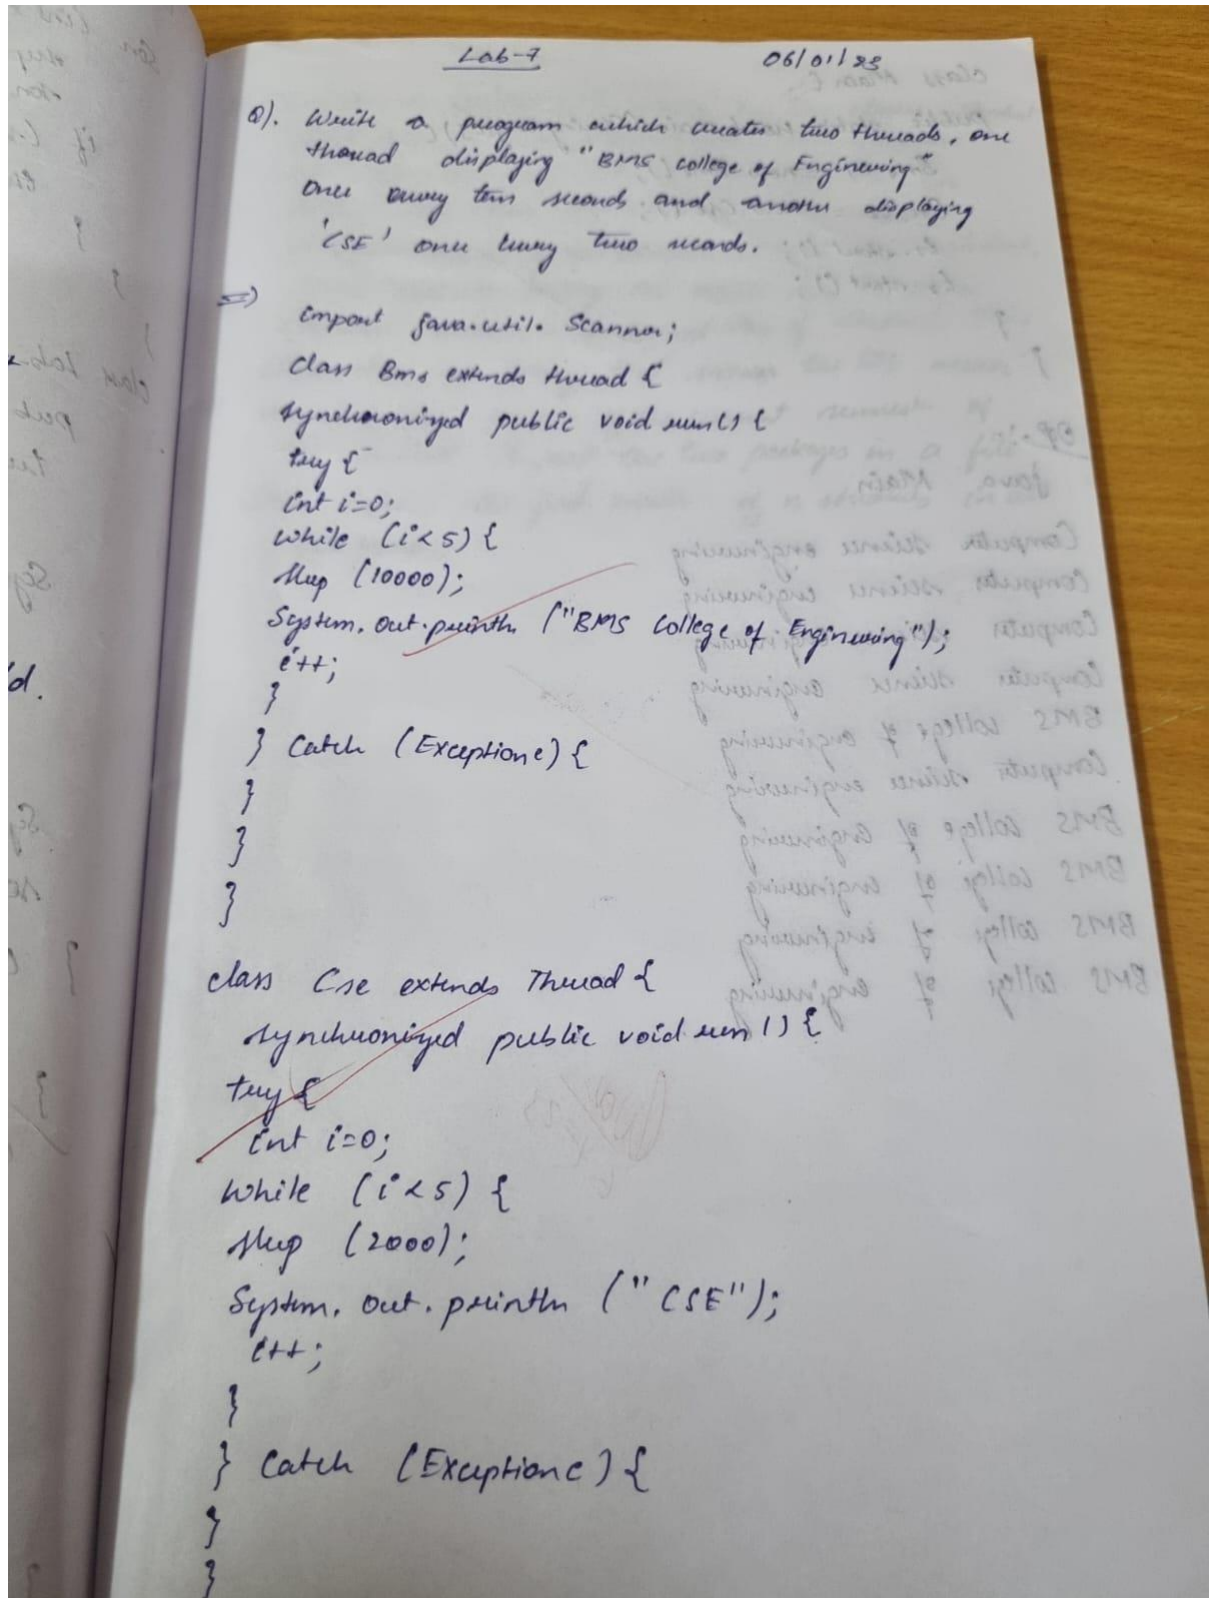 Lab-7
06/01/23
Q). Write a program which creates two threads, one
thread displaying "BMS college of Engineering"
once every ten seconds and another displaying
'CSE' once every two seconds.
=)
import java.util. Scanner;
class Bms extends thread {
synchronized public void run() {
try {
int i=0;
while (i<5) {
sleep (10000);
System. out.println ("BMS College of Engineering");
i++;
}
} Catch (Exception e) {
}
}
}
class Cse extends Thread {
synchronized public void run() {
try {
int i=0;
while (i<5) {
sleep (2000);
System. out. println ("CSE");
i++;
}
} Catch (Exception e) {
}
}